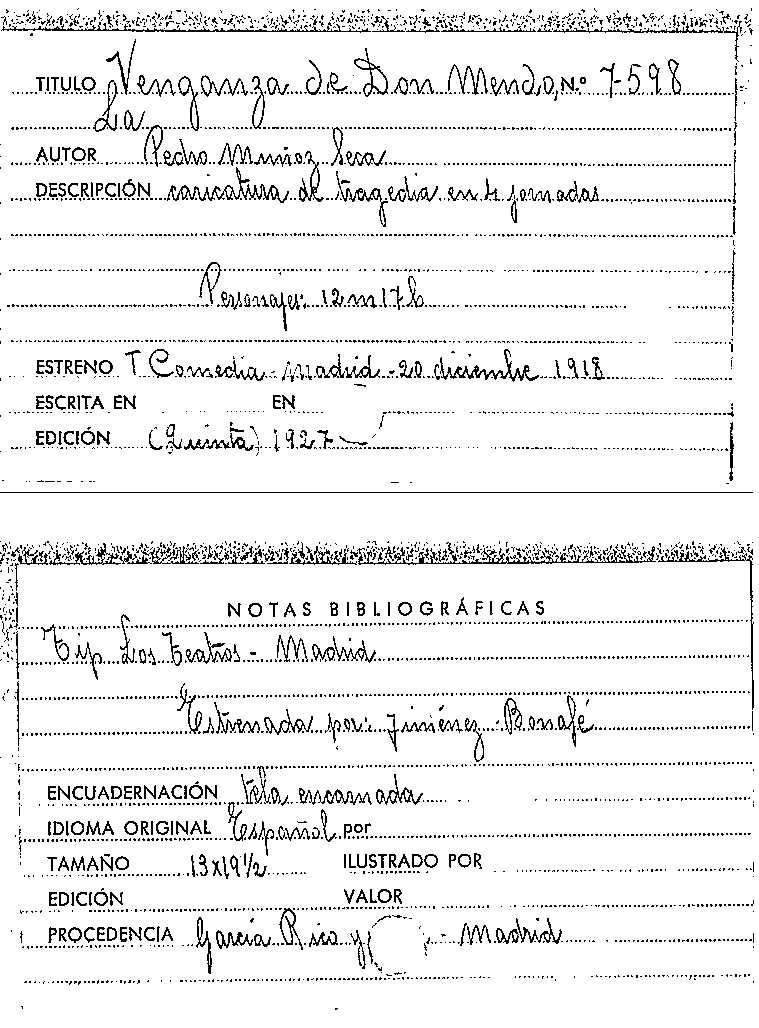 TITULO Venganza de Don Mendo, N.º 7-598
La
AUTOR Pedro Muñoz Seca
DESCRIPCIÓN caricatura de tragedia en 4 jornadas
Personajes: 12 m 17 h
ESTRENO T Comedia - Madrid - 20 diciembre 1918
ESCRITA EN EN
EDICIÓN (Quinta) 1927
NOTAS BIBLIOGRÁFICAS
Tip Los Teatros - Madrid
Estrenada por: Jiménez - Bonafé
ENCUADERNACIÓN tela encarnada
IDIOMA ORIGINAL Español por
TAMAÑO 13x19½ ILUSTRADO POR
EDICIÓN VALOR
PROCEDENCIA García Rico y - Madrid